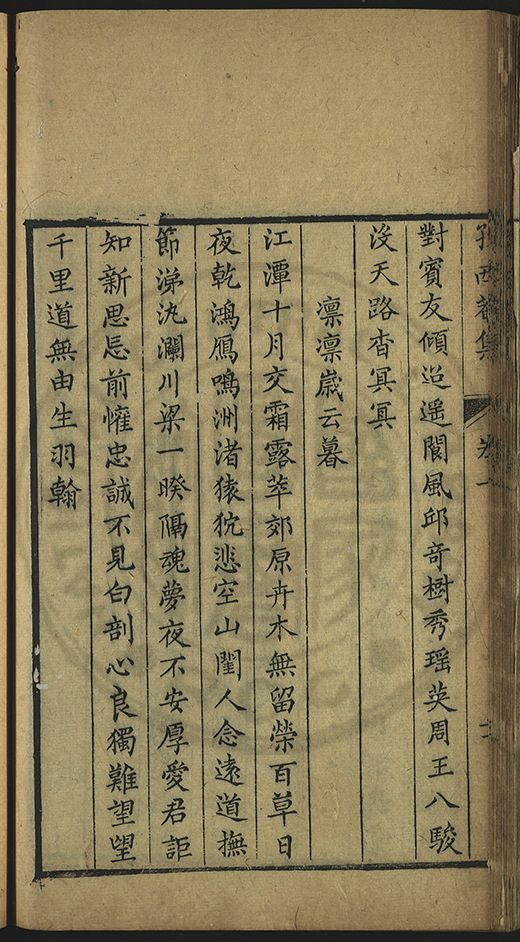 對賓友傾迢遥閬風邱竒樹秀瑶英周王八駿
没天路杳冥冥
凛凛歲云暮
江潭十月交霜露萃郊原卉木無留榮百草日
夜乾鴻鴈鳴洲渚猿狖悲空山閨人念遠道撫
節涕汍瀾川梁一暌隔魂夢夜不安厚愛君詎
知新思忘前懽忠誠不見白剖心良獨難望望
千里道無由生羽翰